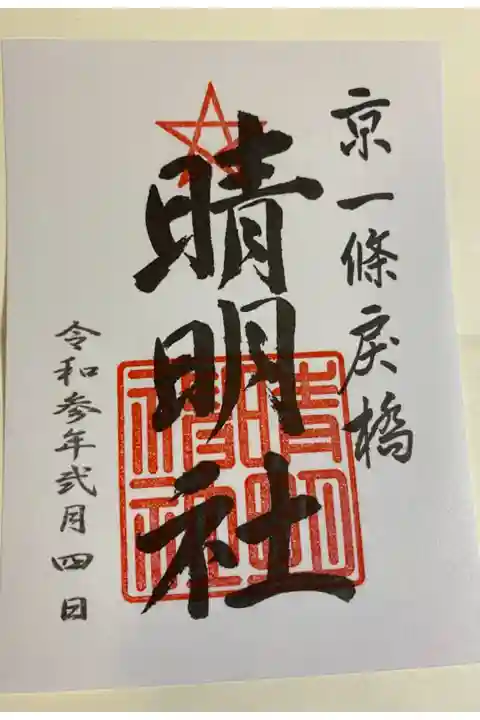 京一條戻橋
晴明社
晴明
神社
令和参年弐月四日